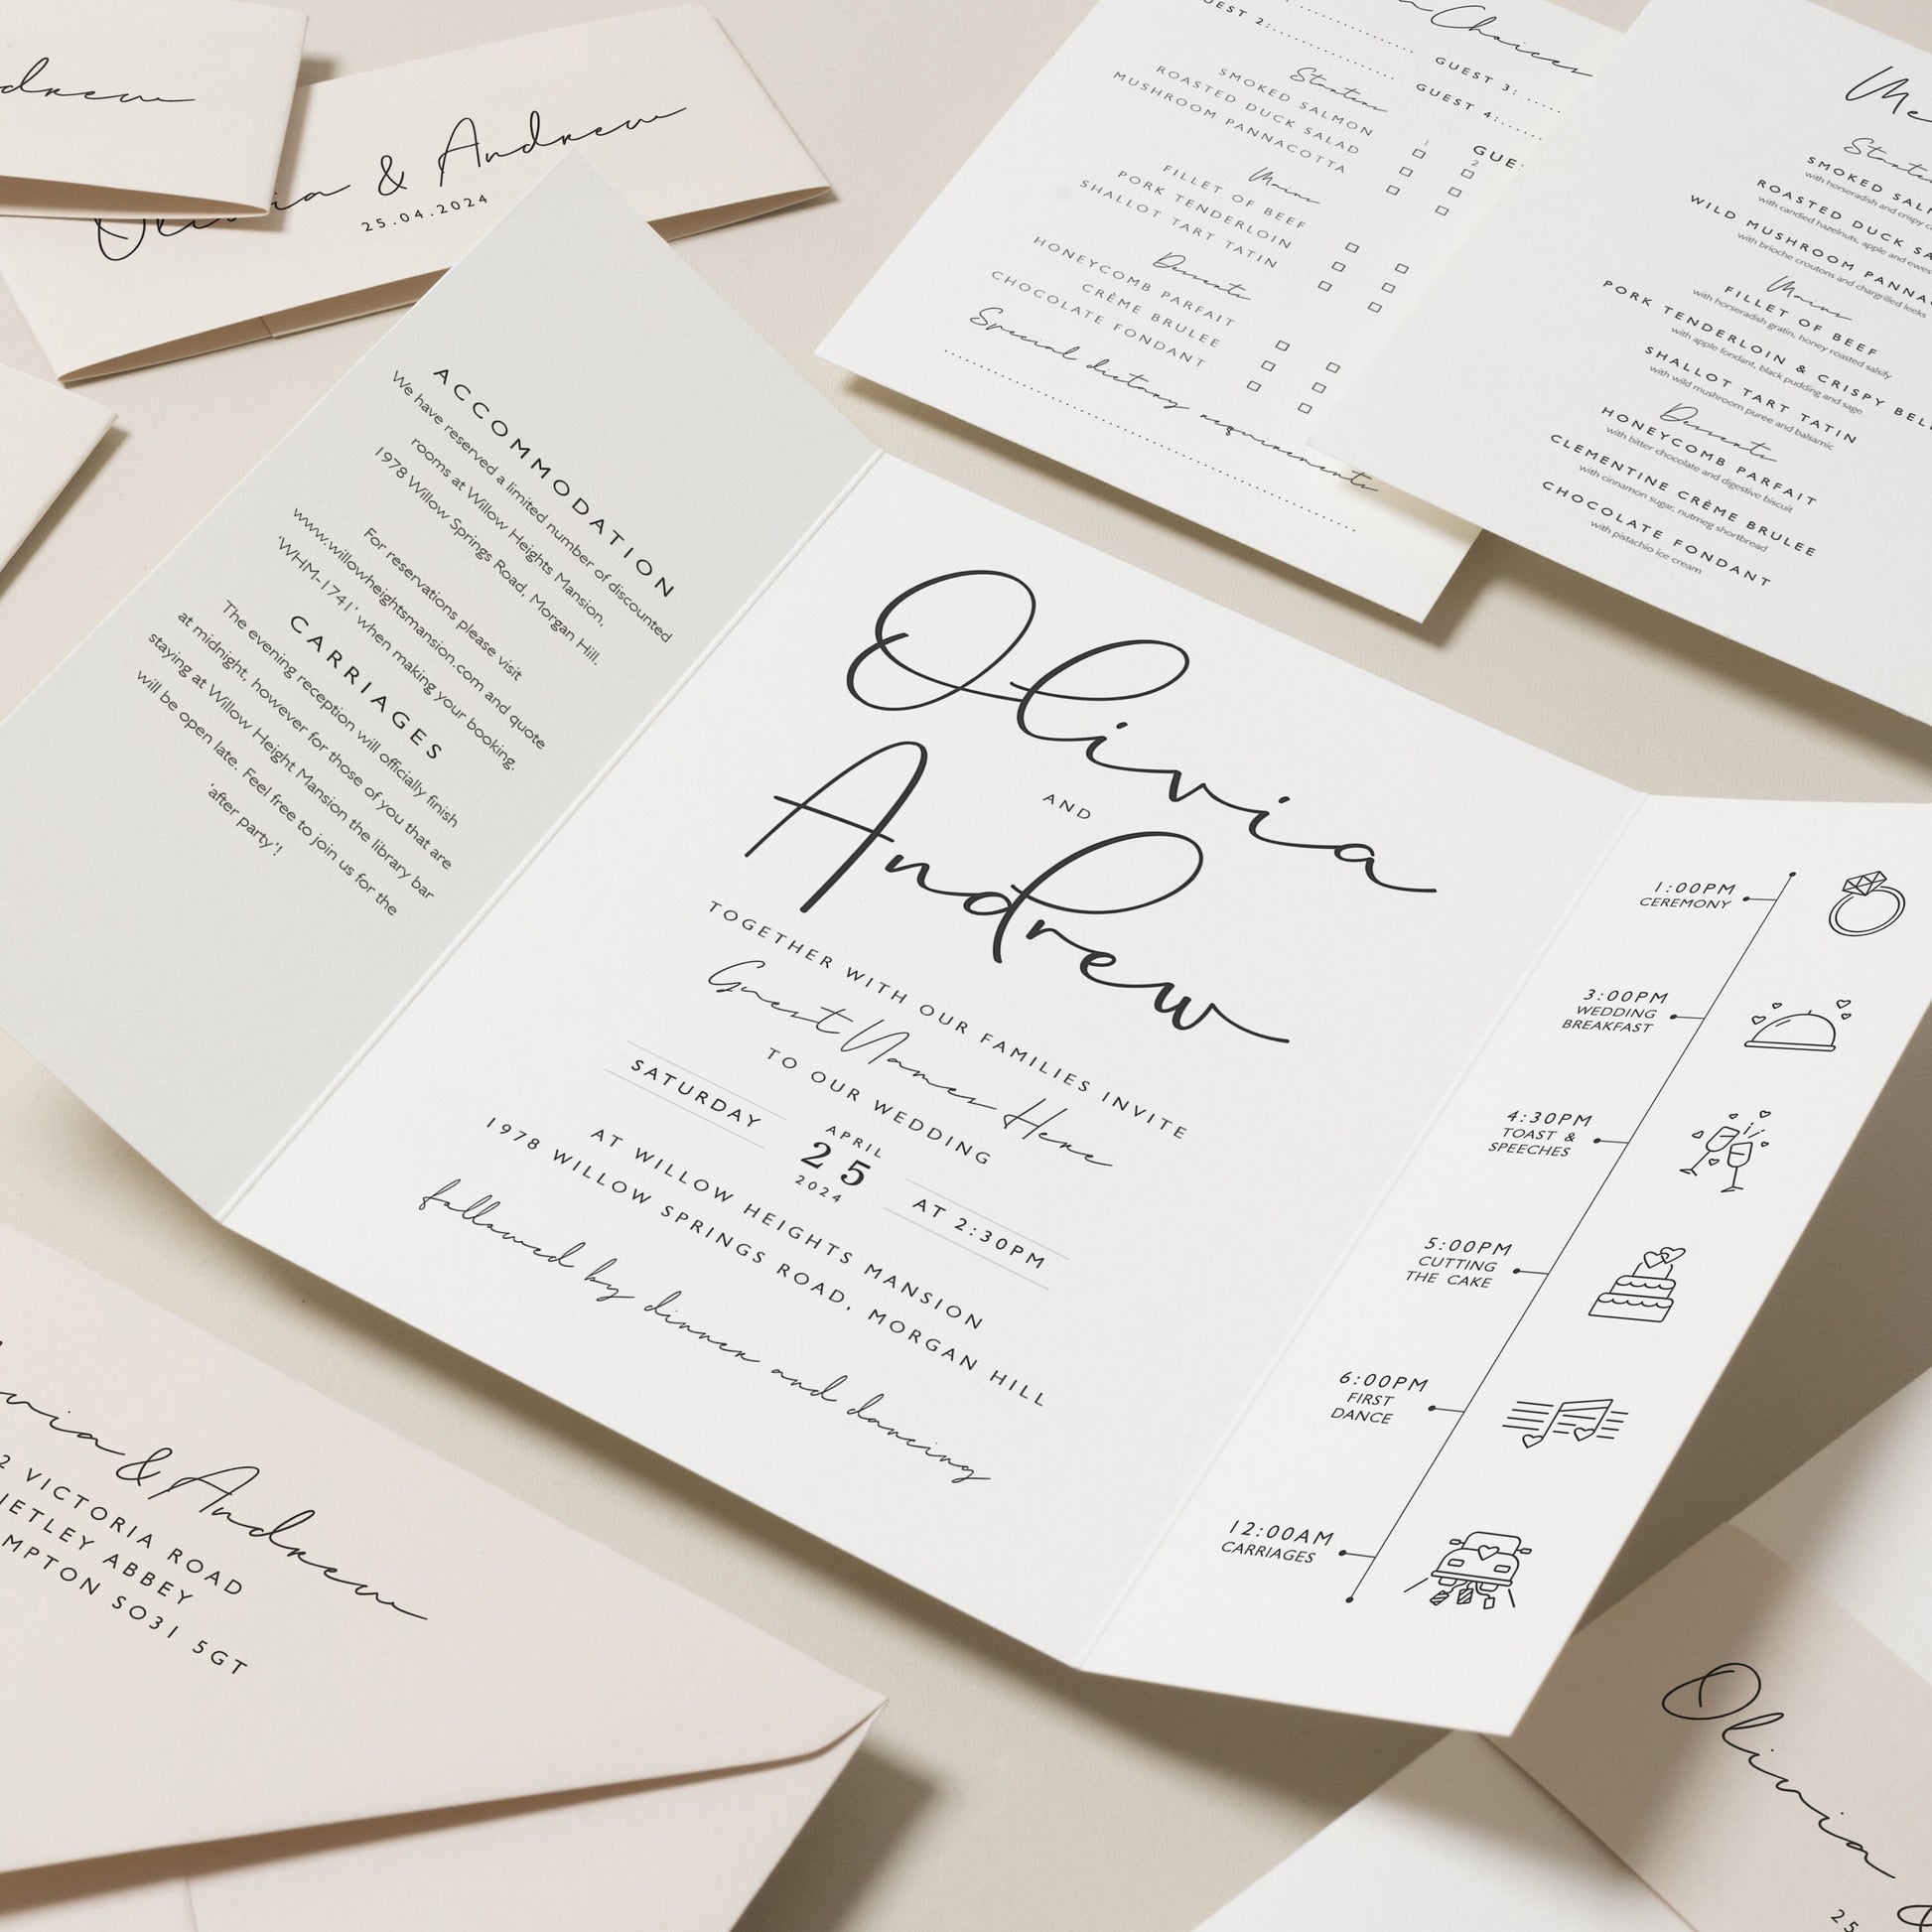 Andrew
Olivia & Andrew
25.04.2024
ACCOMMODATION
We have reserved a limited number of discounted
rooms at Willow Heights Mansion,
1978 Willow Springs Road, Morgan Hill.
For reservations please visit
www.willowheightsmansion.com and quote
'WHM-1741' when making your booking.
CARRIAGES
The evening reception will officially finish
at midnight, however for those of you that are
staying at Willow Height Mansion the library bar
will be open late. Feel free to join us for the
'after party'!
Olivia
AND
Andrew
TOGETHER WITH OUR FAMILIES INVITE
Guest Names Here
TO OUR WEDDING
SATURDAY
APRIL
25
2024
AT 2:30PM
AT WILLOW HEIGHTS MANSION
1978 WILLOW SPRINGS ROAD, MORGAN HILL
followed by dinner and dancing
1:00PM
CEREMONY
3:00PM
WEDDING
BREAKFAST
4:30PM
TOAST &
SPEECHES
5:00PM
CUTTING
THE CAKE
6:00PM
FIRST
DANCE
12:00AM
CARRIAGES
Choices
GUEST 2:
GUEST 3:
GUEST 4:
Starters
SMOKED SALMON
ROASTED DUCK SALAD
MUSHROOM PANNACOTTA
1
2
Mains
FILLET OF BEEF
PORK TENDERLOIN
SHALLOT TART TATIN
Desserts
HONEYCOMB PARFAIT
CRÈME BRULEE
CHOCOLATE FONDANT
Special dietary requirements
Starters
SMOKED
with horseradish and crispy
ROASTED DUCK
with candied hazelnuts, apple and ewes
WILD MUSHROOM
with brioche croutons and chargrilled leeks
Mains
FILLET OF BEEF
with horseradish gratin, honey roasted salsify
PORK TENDERLOIN & CRISPY
with apple fondant, black pudding and sage
SHALLOT TART TATIN
with wild mushroom puree and balsamic
Desserts
HONEYCOMB PARFAIT
with bitter chocolate and digestive biscuit
CLEMENTINE CRÈME BRULEE
with cinnamon sugar, nutmeg shortbread
CHOCOLATE FONDANT
with pistachio ice cream
Olivia & Andrew
2 VICTORIA ROAD
NETLEY ABBEY
SO31 5GT
Olivia